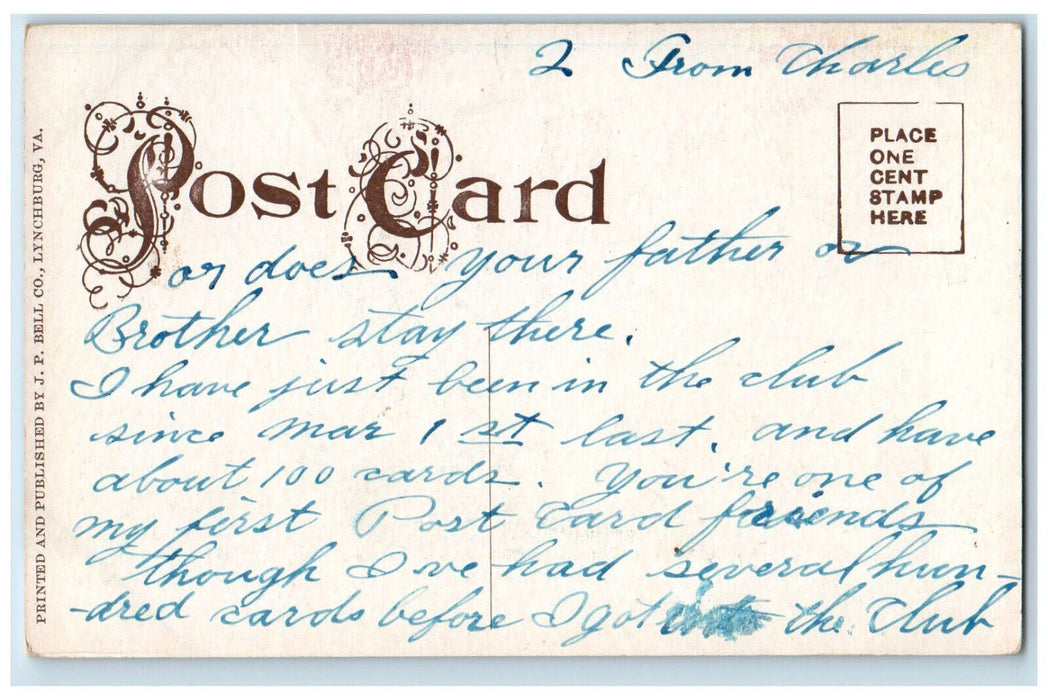 2 From Charles
Post Card
PLACE
ONE
CENT
STAMP
HERE
PRINTED AND PUBLISHED BY J. P. BELL CO., LYNCHBURG, VA.
or does your father or
Brother stay there.
I have just been in the club
since mar 1 st last. and have
about 100 cards. You're one of
my first Post Card friends
though I've had several hun-
-dred cards before I got into the Club